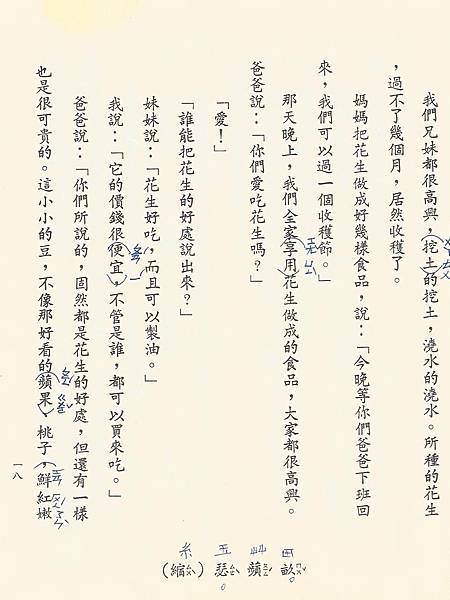 我們兄妹都很高興，挖土的挖土，澆水的澆水。所種的花生
，過不了幾個月，居然收穫了。
媽媽把花生做成好幾樣食品，說：「今晚等你們爸爸下班回
來，我們可以過一個收穫節。」
那天晚上，我們全家享用花生做成的食品，大家都很高興。
爸爸說：「你們愛吃花生嗎？」
「愛！」
「誰能把花生的好處說出來？」
妹妹說：「花生好吃，而且可以製油。」
我說：「它的價錢很便宜，不管是誰，都可以買來吃。」
爸爸說：「你們所說的，固然都是花生的好處，但還有一樣
也是很可貴的。這小小的豆，不像那好看的蘋果、桃子，鮮紅嫩
一八
田 艸 玉 糸
畝 蘋 瑟 （縮）